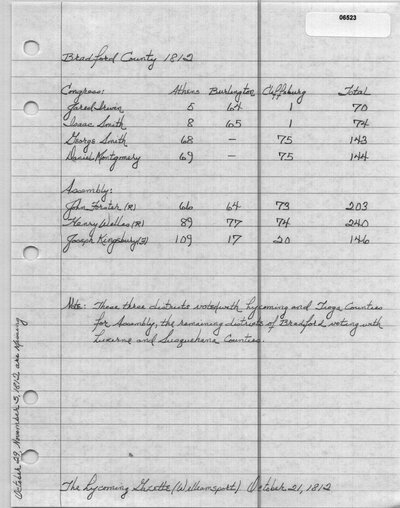 06523
Bradford County 1812
Congress: Athens Burlington Cliffsburg Total
Jared Irwin 5 64 1 70
Isaac Smith 8 65 1 74
George Smith 68 – 75 143
Daniel Montgomery 69 – 75 144
Assembly:
John Forster (R) 66 64 73 203
Henry Welles (R) 89 77 74 240
Joseph Kingsbury (F) 109 17 20 146
Note: These three districts voted with Lycoming and Tioga Counties
for Assembly, the remaining districts of Bradford voting with
Luzerne and Susquehanna Counties.
October 29, November 5, 1812 are missing
The Lycoming Gazette (Williamsport) October 21, 1812